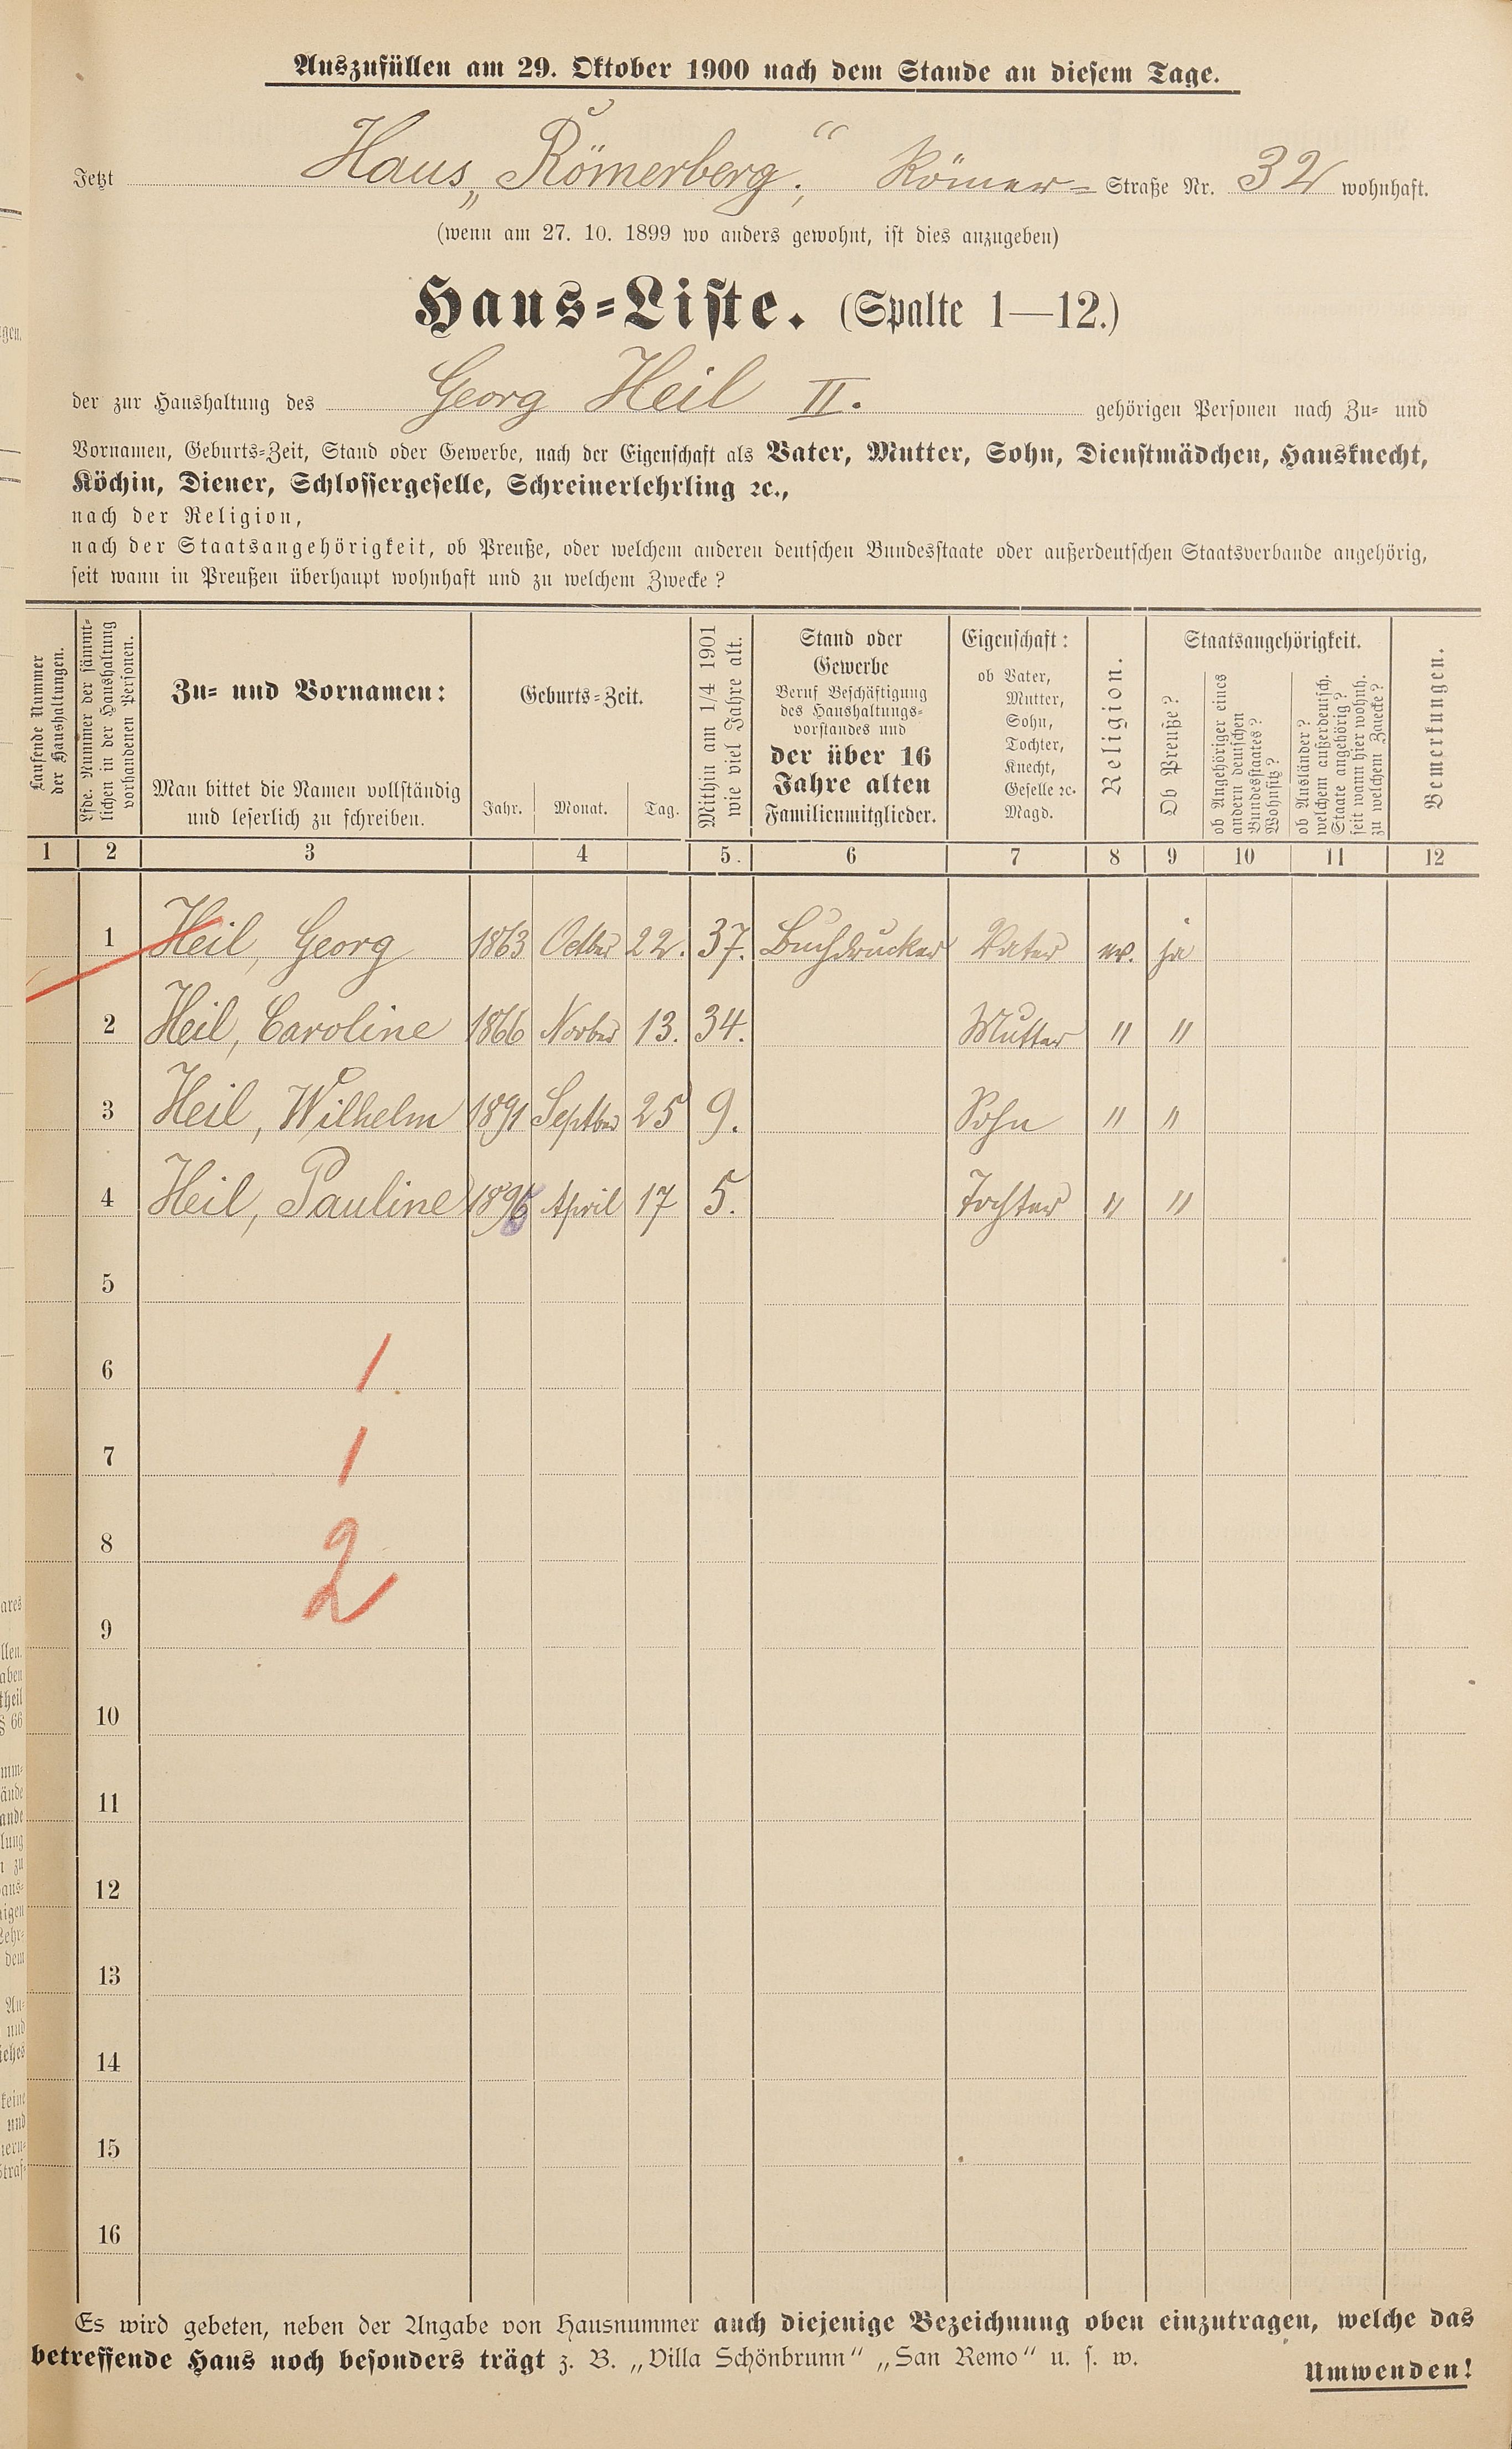 Auszufüllen am 29. Oktober 1900 nach dem Stande an diesem Tage.
Jetzt Haus „Römerberg", Römer- Straße Nr. 32 wohnhaft.
(wenn am 27. 10. 1899 wo anders gewohnt, ist dies anzugeben)
Haus-Liste. (Spalte 1—12.)
der zur Haushaltung des Georg Heil II. gehörigen Personen nach Zu- und
Vornamen, Geburts-Zeit, Stand oder Gewerbe, nach der Eigenschaft als Vater, Mutter, Sohn, Dienstmädchen, Hausknecht,
Köchin, Diener, Schlossergeselle, Schreinerlehrling ꝛc.,
nach der Religion,
nach der Staatsangehörigkeit, ob Preuße, oder welchem anderen deutschen Bundesstaate oder außerdeutschen Staatsverbande angehörig,
seit wann in Preußen überhaupt wohnhaft und zu welchem Zwecke?
Laufende Nummer
der Haushaltungen.
Lfde. Nummer der sämmt-
lichen in der Haushaltung
vorhandenen Personen.
Zu- und Vornamen:
Man bittet die Namen vollständig
und leserlich zu schreiben.
Geburts-Zeit.
Jahr. Monat. Tag.
Mithin am 1/4 1901
wie viel Jahre alt.
Stand oder
Gewerbe
Beruf Beschäftigung
des Haushaltungs-
vorstandes und
der über 16
Jahre alten
Familienmitglieder.
Eigenschaft:
ob Vater,
Mutter,
Sohn,
Tochter,
Knecht,
Geselle ꝛc.
Magd.
Religion.
Staatsangehörigkeit.
Ob Preuße?
ob Angehöriger eines
andern deutschen
Bundesstaates?
Wohnsitz?
ob Ausländer?
welchem außerdeutsch.
Staate angehörig?
seit wann hier wohnh.
zu welchem Zwecke?
Bemerkungen.
1 2 3 4 5. 6 7 8 9 10 11 12
1 Heil, Georg 1863 Octber 22. 37. Buchdrucker Vater ev. ja
2 Heil, Caroline 1866 Novber 13. 34. Mutter " "
3 Heil, Wilhelm 1891 Septber 25 9. Sohn " "
4 Heil, Pauline 1896 April 17 5. Tochter " "
5
6 1
7 1
8 2
9
10
11
12
13
14
15
16
Es wird gebeten, neben der Angabe von Hausnummer auch diejenige Bezeichnung oben einzutragen, welche das
betreffende Haus noch besonders trägt z. B. „Villa Schönbrunn" „San Remo" u. s. w.
Umwenden!